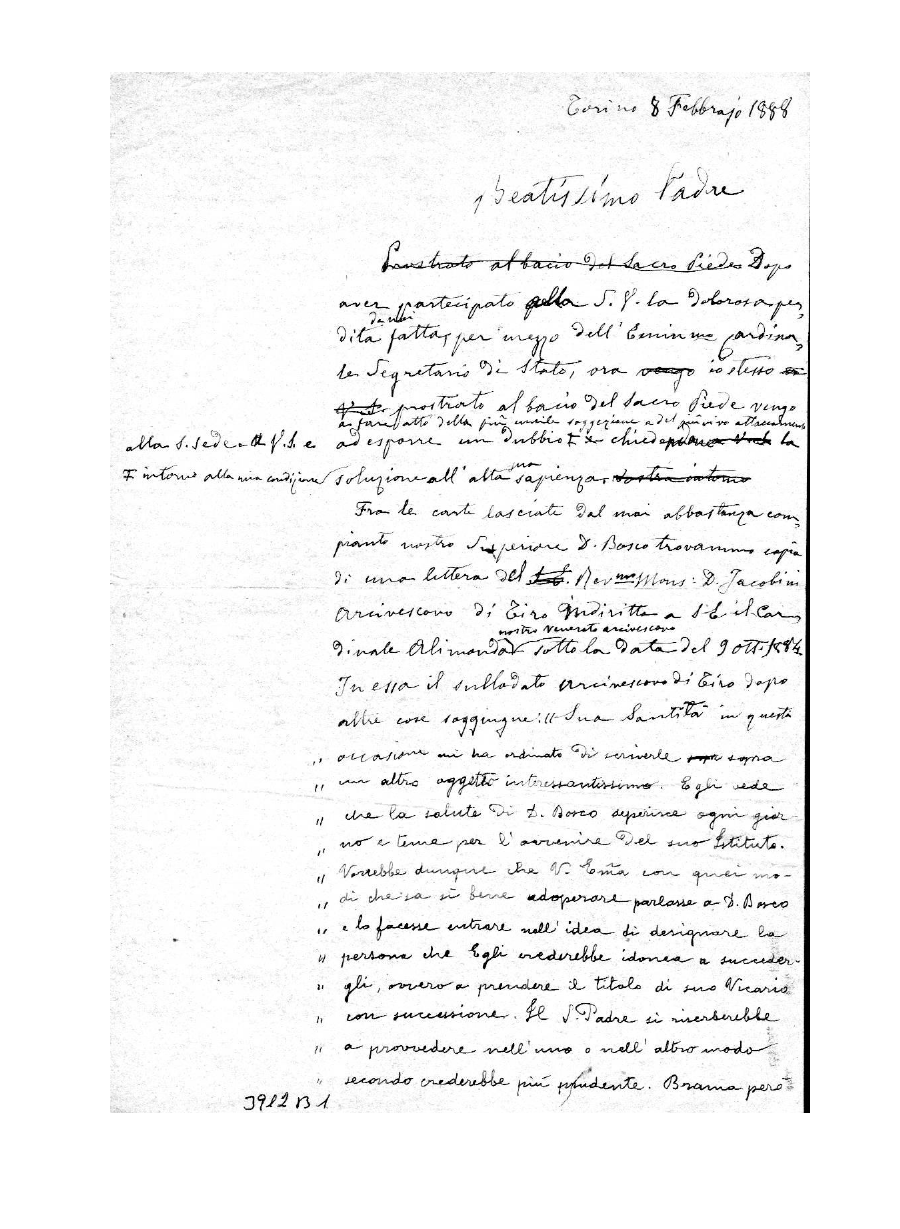 Torino 8 Febbrajo 1888
Beatissimo Padre
Prostrato al bacio del Sacro Piede Dopo
aver partecipato alla S. V. la dolorosa per,
da noi
dita fatta, per mezzo dell'Eminmo Cardina,
le Segretario di Stato, ora vengo io stesso
V. S. prostrato al bacio del Sacro Piede vengo
a fare atto della più umile soggezione e del più vivo attaccamento
alla S. Sede e a V. S. e
ad esporre un dubbio Ŧ e chiedere la
Ŧ intorno alla mia condizione
sua
soluzione all'alta sapienza. vostra intorno
Fra le carte lasciate dal mai abbastanza com,
pianto nostro Superiore D. Bosco trovammo copia
di una lettera del S. E. Revmo Mons: D. Jacobini
Arcivescovo di Tiro indiritta a S. E. il Car,
nostro venerato arcivescovo
dinale Alimonda sotto la data del 9 ott. 1884.
In essa il sullodato Arcivescovo di Tiro dopo
altre cose soggiugne: "Sua Santità in questa
" occasione mi ha ordinato di scriverle sopra
" un altro oggetto interessantissimo. Egli vede
" che la salute di D. Bosco deperisce ogni gior-
" no e teme per l'avvenire del suo Istituto.
" Vorrebbe dunque che V. Emza con quei mo-
" di che sa sì bene adoperare parlasse a D. Bosco
" e lo facesse entrare nell'idea di designare la
" persona che Egli crederebbe idonea a succeder-
" gli, ovvero a prendere il titolo di suo Vicario
" con successione. Il S. Padre si riserberebbe
" a provvedere nell'uno o nell'altro modo
" secondo crederebbe più prudente. Brama però
3912 B 1